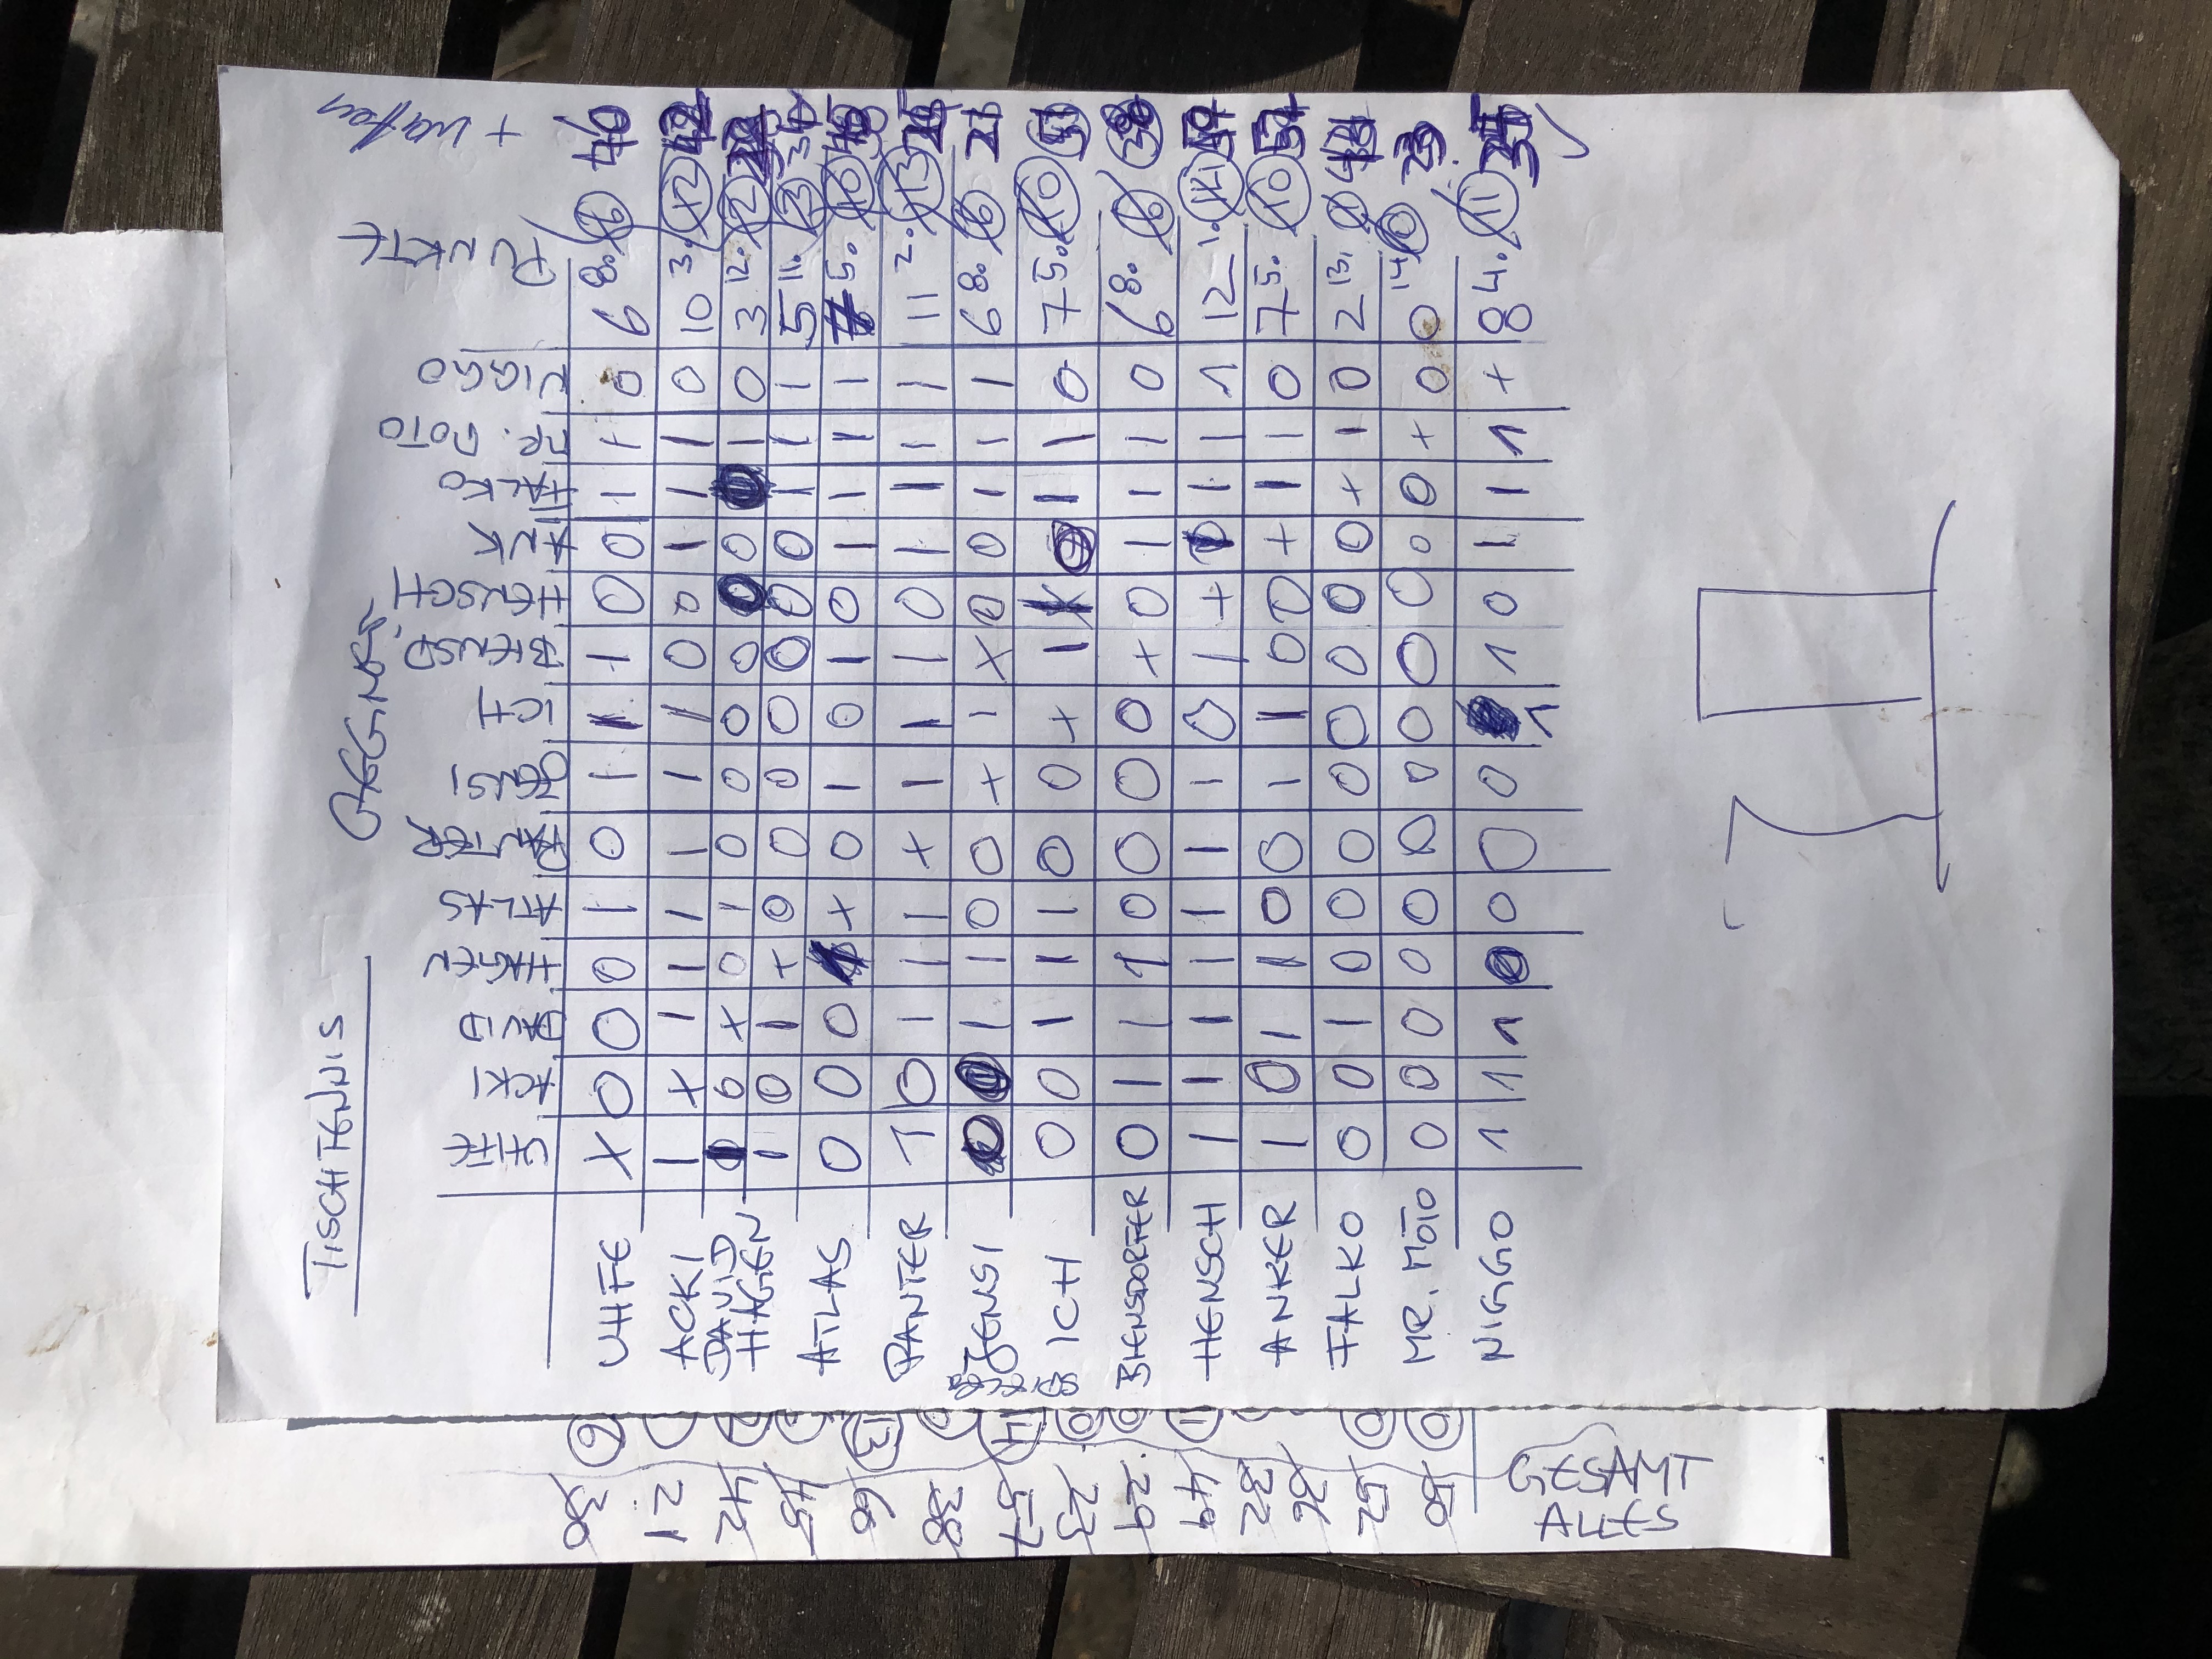 TISCHTENNIS
GEGNER
UHFE ACKI DAVID HAGEN ATLAS PANTER JENSI ICH BIENSD. HENSCH ANK FALKO MR. MOTO NIGGO PUNKTE
UHFE X 0 0 0 1 0 1 1 1 0 0 1 1 0 6 8. 6
ACKI 1 X 1 1 1 1 1 1 0 0 1 1 1 0 10 3. 12 42
DAVID 0 X 0 1 0 0 0 0 0 0 1 0 3 12. 2
HAGEN 1 0 1 + 0 0 0 0 0 0 0 1 1 1 5 11. 3
ATLAS 0 0 0 1 X 0 1 0 1 0 1 1 1 1 5. 10
PANTER 1 0 1 1 1 X 1 1 1 0 1 1 1 1 11 2. 13
JENSI 1 1 0 0 + 1 X 0 0 1 1 1 6 8. 6
SPIELER
ICH 0 0 1 1 1 0 0 + 1 0 1 1 0 7 5. 10
BIENSDORFER 0 1 1 1 0 0 0 0 + 0 1 1 1 0 6 8. 6
HENSCH 1 1 1 1 1 1 1 0 1 + 1 1 1 12 1. 14
ANKER 1 0 1 1 0 0 1 1 0 0 + 1 1 0 7 5. 10
FALKO 0 0 1 0 0 0 0 0 0 0 0 + 1 0 2 13.
MR. MOTO 0 0 0 0 0 0 0 0 0 0 0 0 + 0 0 14. 0
NIGGO 1 1 1 0 0 0 0 1 1 0 1 1 1 + 8 4. 11
GESAMT
ALLES
50
52
26
32
49
29
23
57
38
9
45
42
21